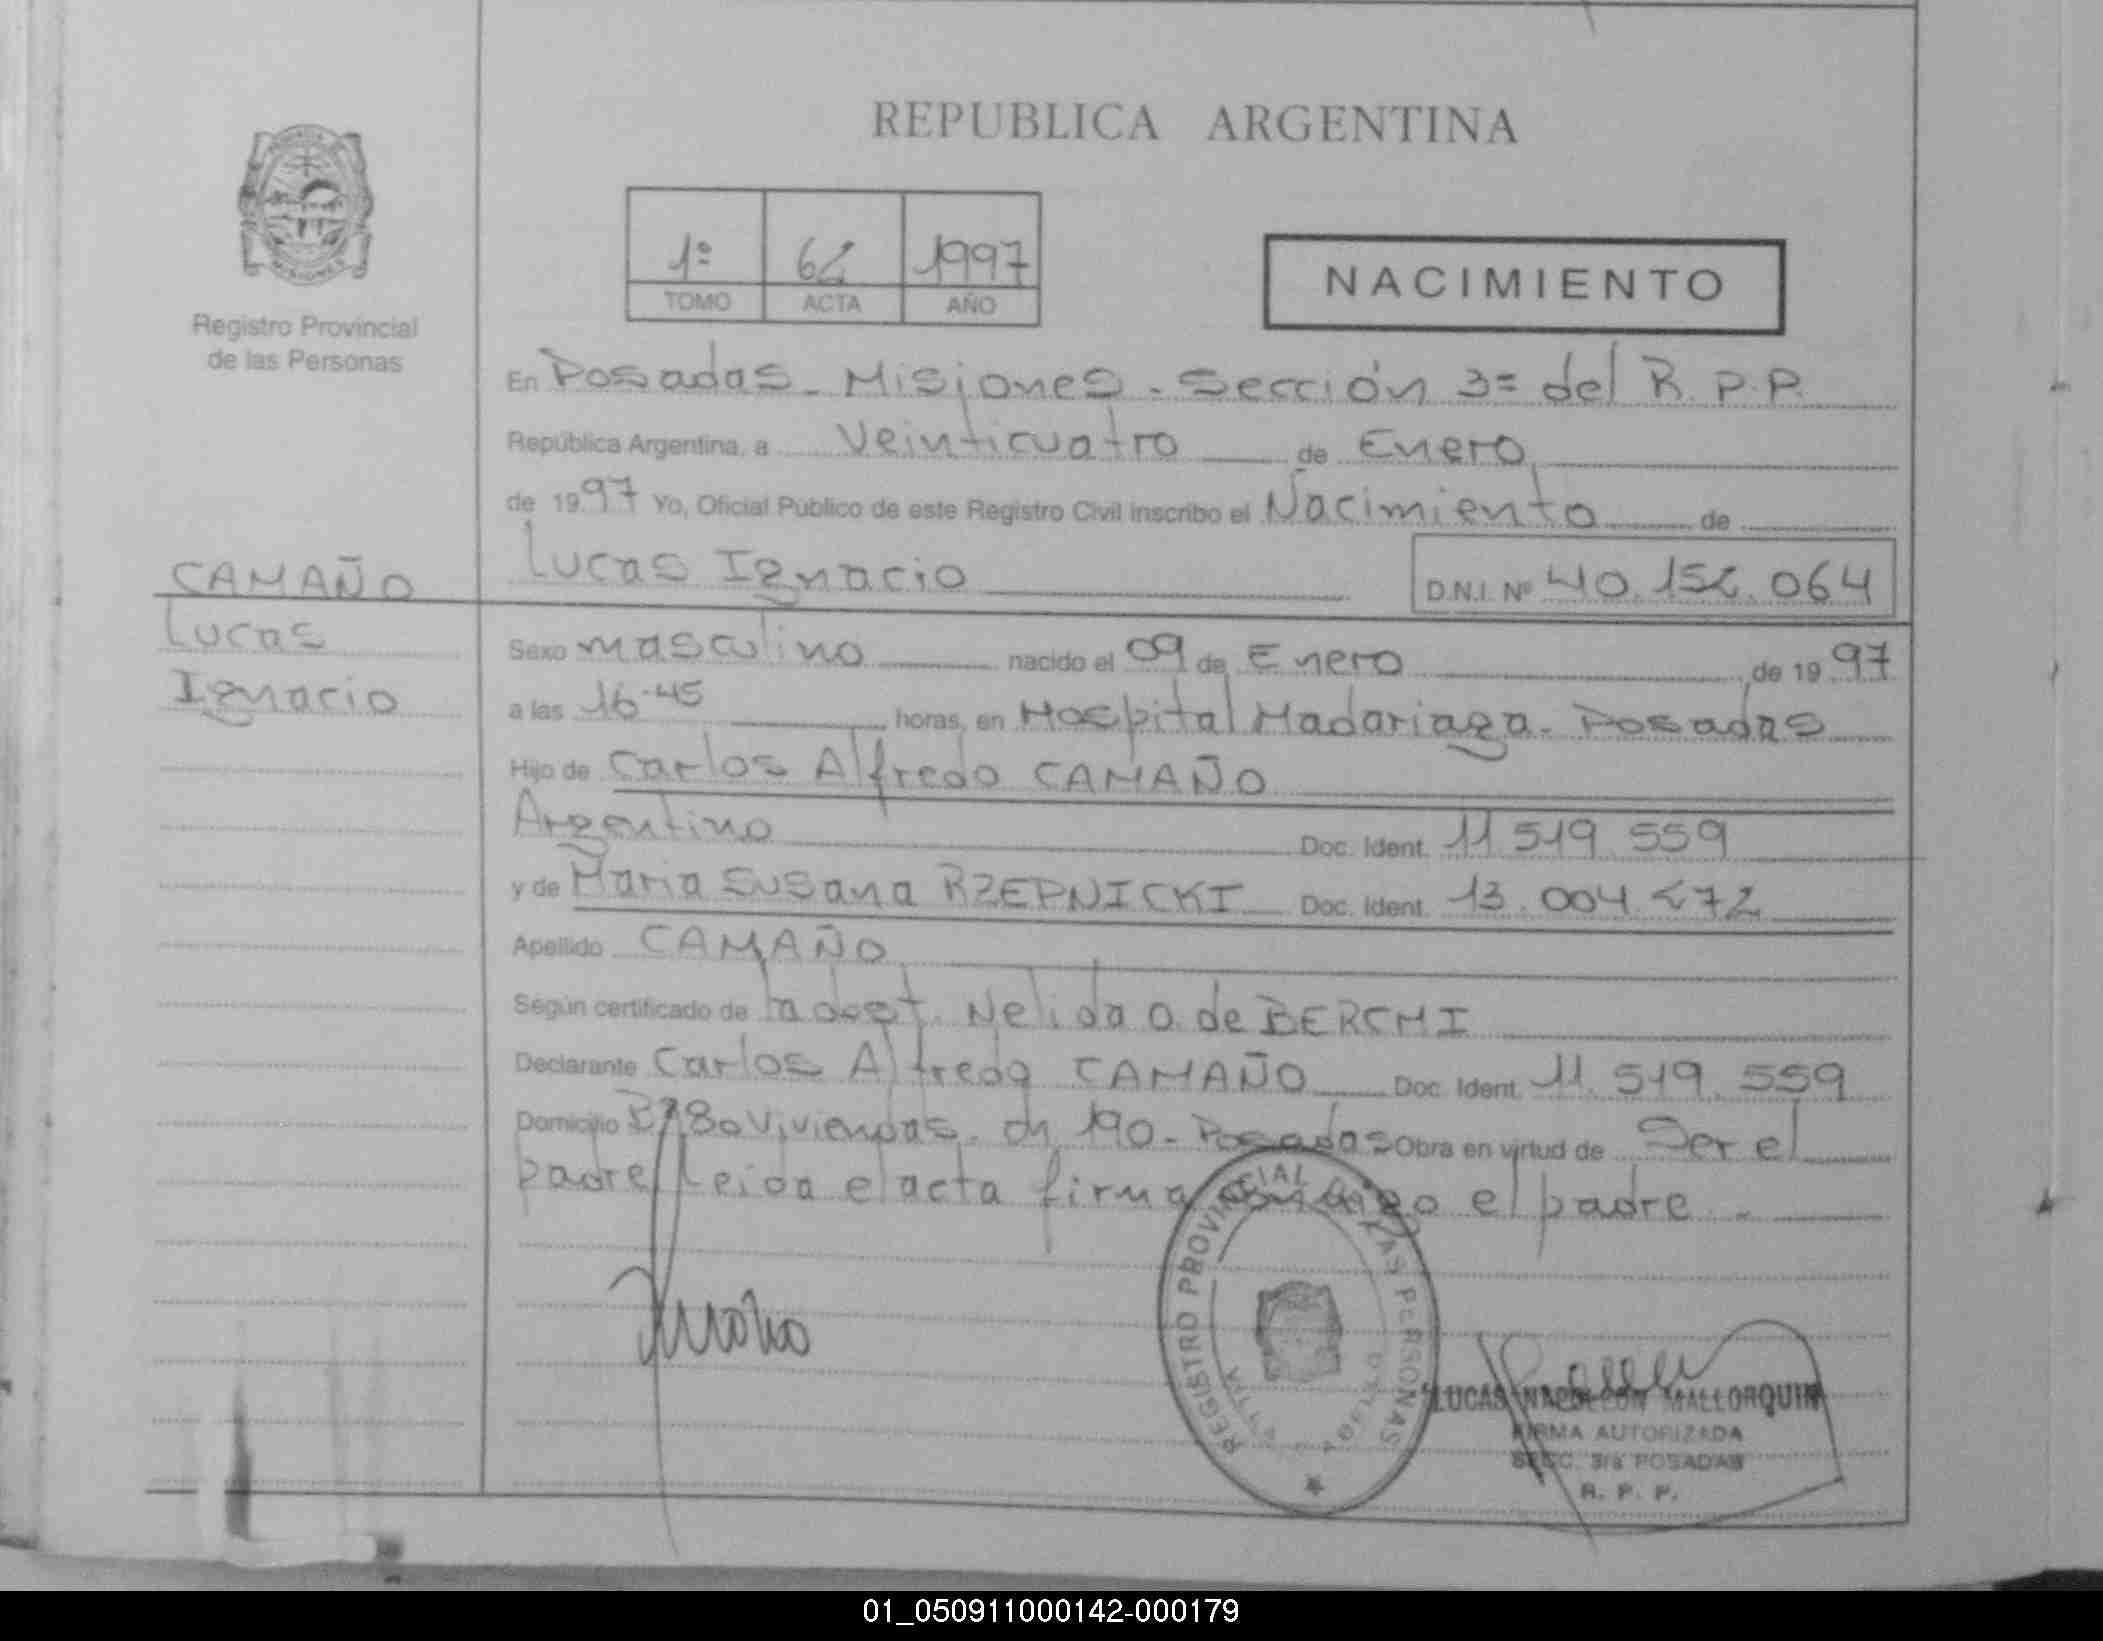 REPUBLICA ARGENTINA
1º 62 1997
TOMO ACTA AÑO
NACIMIENTO
Registro Provincial
de las Personas
En Posadas - Misiones - Sección 3= del R.P.P.
República Argentina, a Veinticuatro de Enero
de 1997 Yo, Oficial Público de este Registro Civil inscribo el Nacimiento de
Lucas Ignacio D.N.I. Nº 40.152.064
CAMAÑO
Lucas
Ignacio
Sexo masculino nacido el 09 de Enero de 1997
a las 16-45 horas, en Hospital Madariaga - Posadas
Hijo de Carlos Alfredo CAMAÑO
Argentino Doc. Ident. 11.519.559
y de Maria Susana RZEPNICKI Doc. Ident. 13.004.272
Apellido CAMAÑO
Según certificado de la obst. Nelida O. de BERCHI
Declarante Carlos Alfredo CAMAÑO Doc. Ident. 11.519.559
Domicilio 780 Viviendas - ch 190 - Posadas Obra en virtud de Ser el
padre Leida el acta firma conmigo el padre -
REGISTRO PROVINCIAL PERSONAS
LUCAS NAPOLEON MALLORQUIN
FIRMA AUTORIZADA
SECC. 3ra POSADAS
R. P. P.
01_050911000142-000179